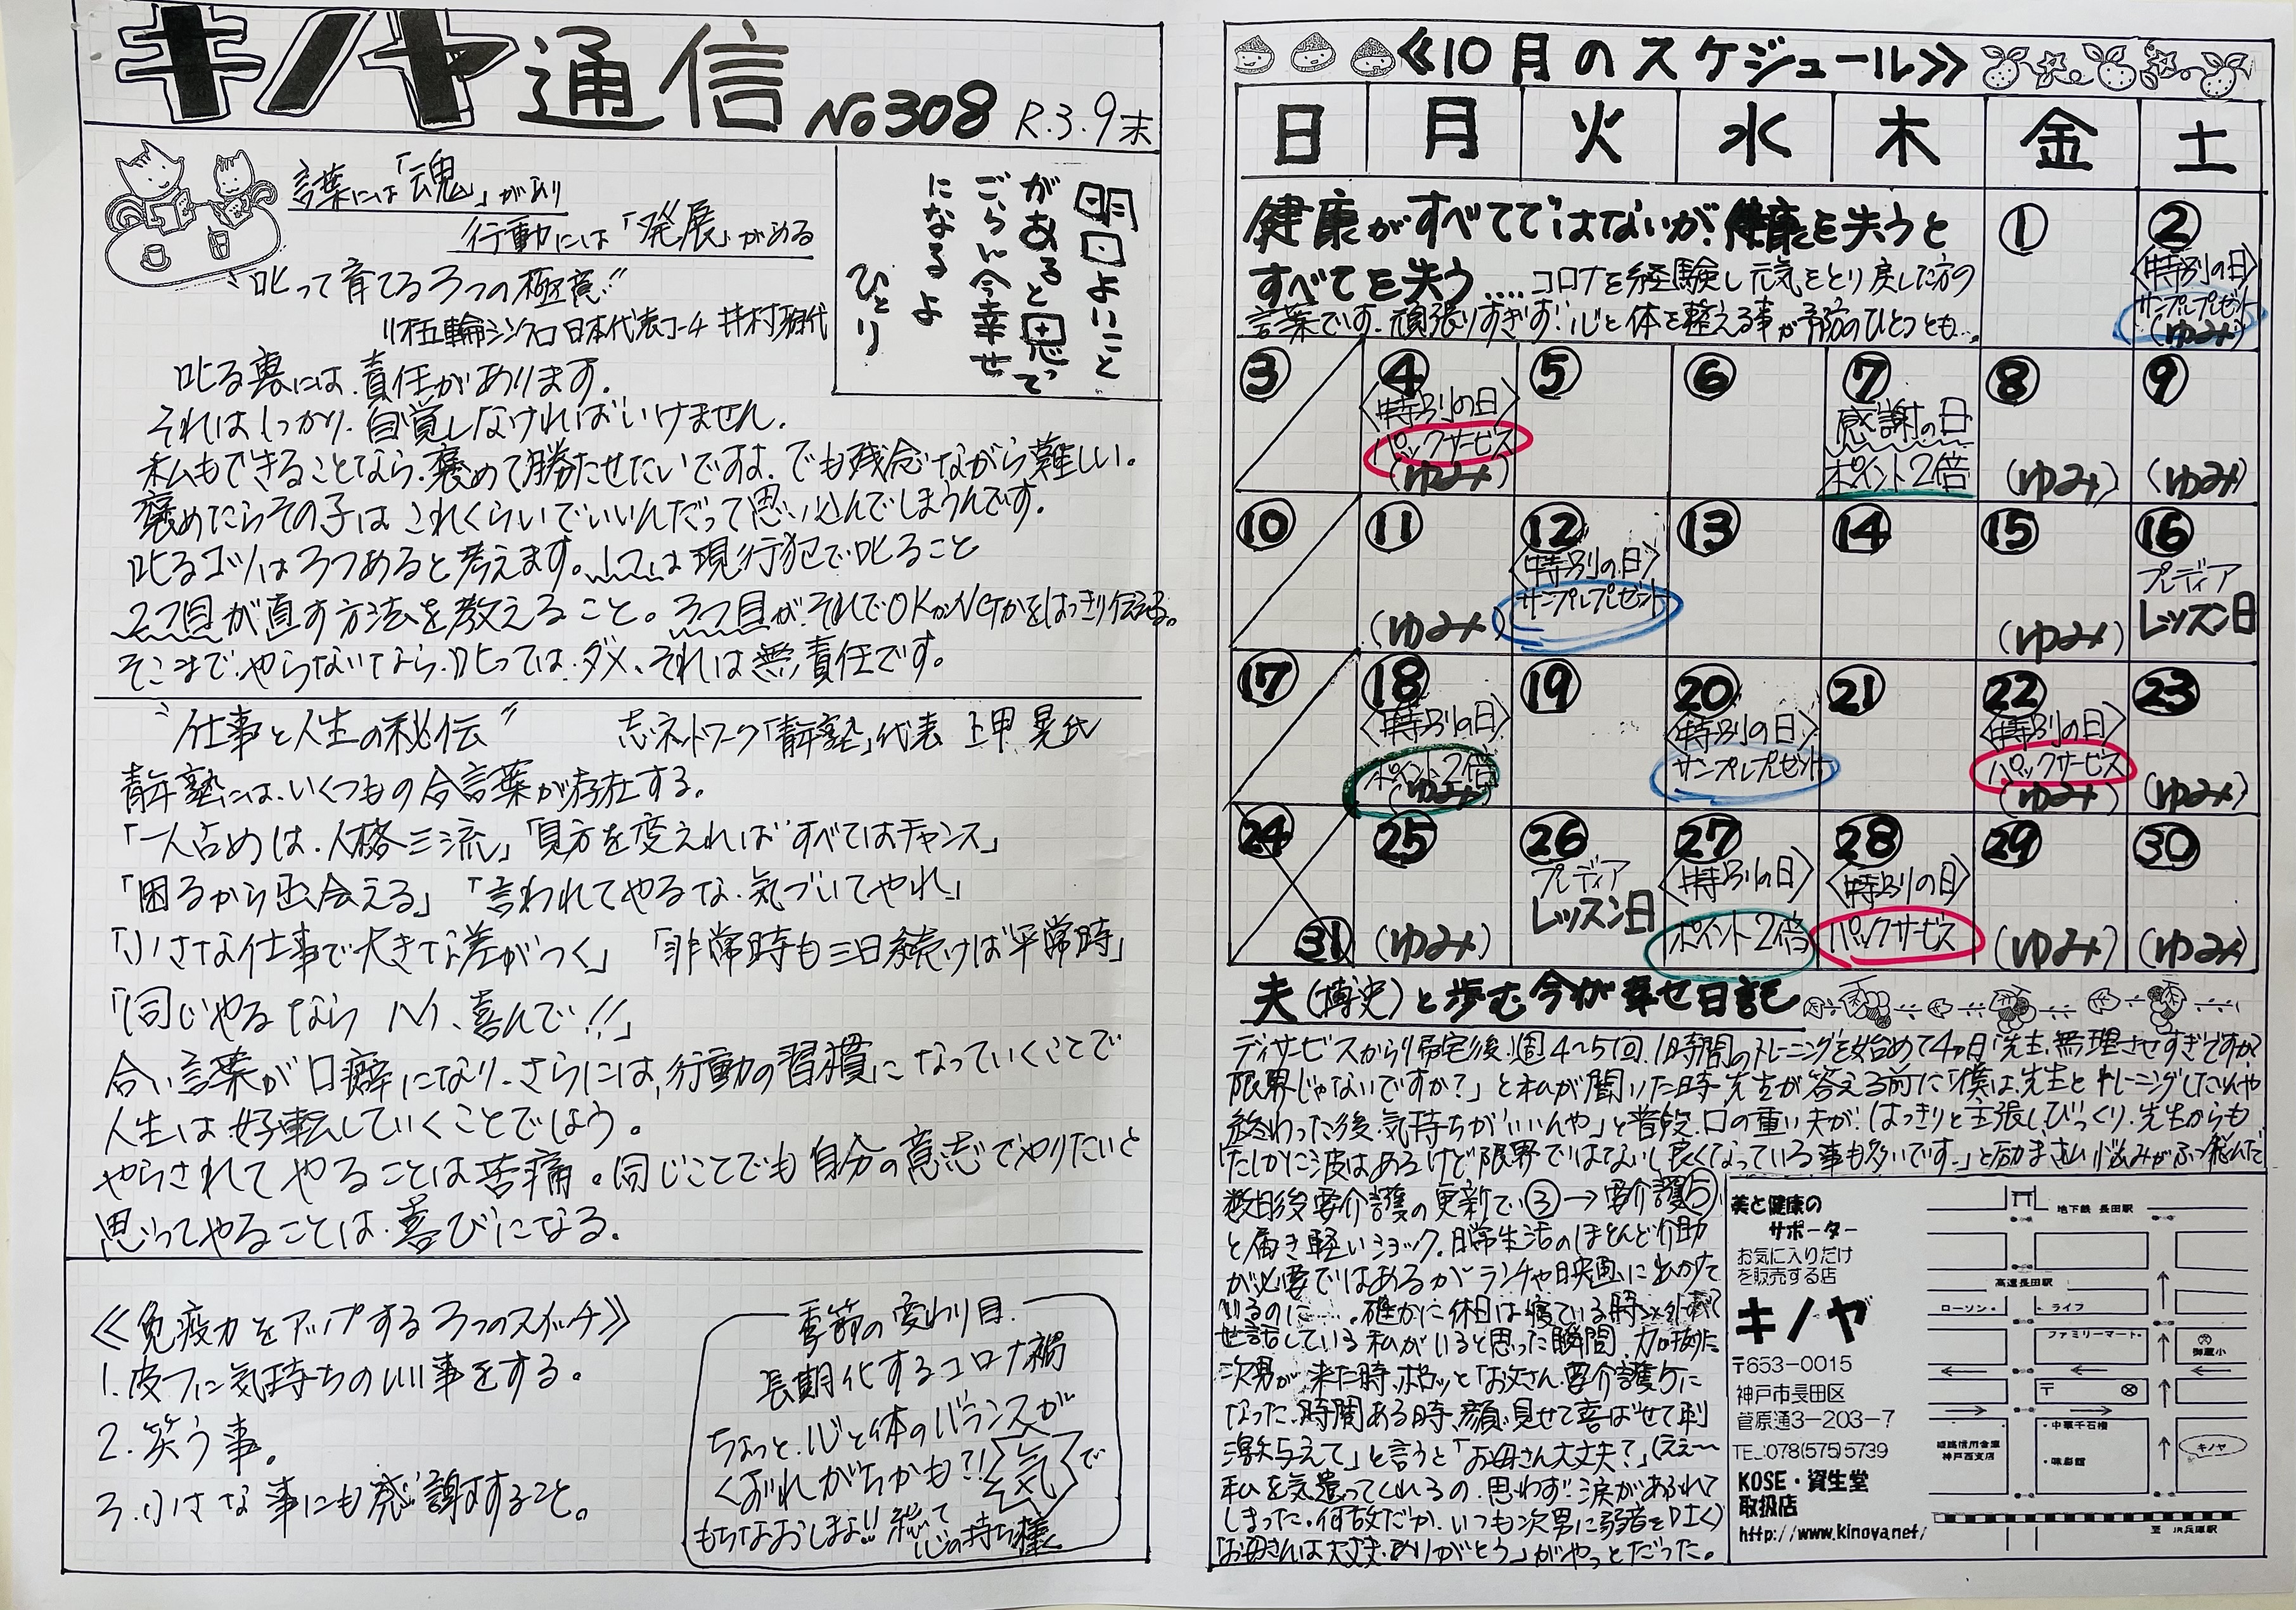 キノヤ通信 No308 R.3.9末
言葉には「魂」があり
行動には「発展」がある
"叱って育てる3つの極意"
リオ五輪シンクロ日本代表コーチ 井村雅代
明日よいこと
があると思って
ごらん今幸せ
になるよ
ひとり
叱る裏には、責任があります。
それはしっかり、自覚しなければいけません。
私もできることなら、褒めて勝たせたいですよ。でも残念ながら難しい。
褒めたらその子はこれくらいでいいんだって思い込んでしまうんです。
叱るコツは3つあると考えます。1つは現行犯で叱ること
2つ目が直す方法を教えること。3つ目が、それでOKかNGかをはっきり伝える。
そこまで、やらないなら、叱っては、ダメ、それは無責任です。
"仕事と人生の秘伝" 志ネットワーク「青年塾」代表 上甲 晃氏
青年塾には、いくつもの合言葉が存在する。
「一人占めは、人格三流」「見方を変えればすべてはチャンス」
「困るから出会える」「言われてやるな、気づいてやれ」
「小さな仕事で大きな差がつく」「非常時も三日続けば平常時」
「同じやるなら ハイ、喜んで!!」
合い言葉が口癖になり、さらには、行動の習慣になっていくことで
人生は好転していくことでしょう。
やらされてやることは苦痛。同じことでも自分の意志でやりたいと
思ってやることは、喜びになる。
《免疫力をアップする3つのスイッチ》
1.皮フに気持ちのいい事をする。
2.笑う事。
3.小さな事にも感謝すること。
季節の変わり目
長期化するコロナ禍
ちょっと、心と体のバランスが
くずれがちかも?!気で
もちなおしましょ!!総て
心の持ち様
《10月のスケジュール》
日 月 火 水 木 金 土
健康がすべてではないが、健康を失うと
すべてを失う....コロナを経験し元気をとり戻した方の
言葉です。頑張りすぎず!心と体を整える事が予防のひとつとも...
① ②
<特別の日>
サンプルプレゼント
(ゆみ)
③ ④ ⑤ ⑥ ⑦ ⑧ ⑨
<特別の日> 感謝の日
パックサービス ポイント2倍
(ゆみ) (ゆみ) (ゆみ)
⑩ ⑪ ⑫ ⑬ ⑭ ⑮ ⑯
<特別の日> プレディア
サンプルプレゼント レッスン日
(ゆみ) (ゆみ)
⑰ ⑱ ⑲ ⑳ ㉑ ㉒ ㉓
<特別の日> <特別の日> <特別の日>
ポイント2倍 サンプルプレゼント パックサービス
(ゆみ) (ゆみ) (ゆみ)
㉔ ㉕ ㉖ ㉗ ㉘ ㉙ ㉚
プレディア <特別の日> <特別の日>
レッスン日 ポイント2倍 パックサービス
㉛ (ゆみ) (ゆみ) (ゆみ)
夫(博史)と歩む今が幸せ日記
デイサービスから帰宅後、週4〜5回、1時間のトレーニングを始めて4ヵ月「先生、無理させすぎですか?
限界じゃないですか?」と私が聞いた時、先生が答える前に「僕は、先生とトレーニングしたいんや
終わった後、気持ちがいいんや」と普段、口の重い夫が、はっきりと主張しびっくり、先生からも
「たしかに波はあるけど限界ではないし良くなっている事も多いです。」と励まされ悩みがふっ飛んだ
数日後要介護の更新で③→要介護⑤
と届き軽いショック。日常生活のほとんど介助
が必要ではあるがランチや映画に出かけて
いるのに....。確かに休日は寝ている時
世話している私がいると思った瞬間、力が抜けた
次男が来た時、ポロッと「お父さん要介護5に
なった、時間ある時、顔見せて喜ばせて刺
激与えて」と言うと「お母さん大丈夫?」(ええ〜
私を気遣ってくれるの。思わず涙があふれて
しまった。何故だか、いつも次男に弱音をD土く)
「お母さんは大丈夫、ありがとう」がやっとだった。
美と健康の
サポーター
お気に入りだけ
を販売する店
キノヤ
〒653-0015
神戸市長田区
菅原通3-203-7
TEL:078(575)5739
KOSE・資生堂
取扱店
http://www.kinoya.net/
地下鉄 長田駅
高速長田駅
ローソン・ ・ライフ
ファミリーマート・
御蔵小
・中華千石樓
姫路信用金庫
神戸西支店
・味彩館
キノヤ
至 JR兵庫駅